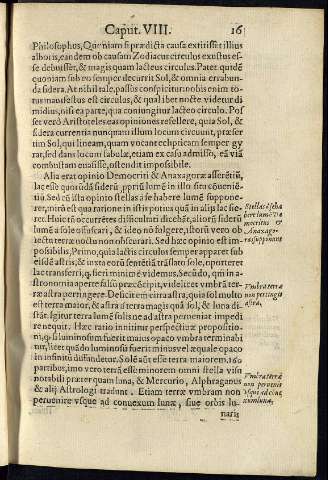 Caput. VIII. 16
Philosophus, Quoniam si prædicta causa extitisset illius
alboris, eandem ob causam Zodiacus circulus exustus es-
se debuisset, & magis quam lacteus circulus. Patet quidē
quoniam sub eo semper decurrit Sol, & omnia errabun-
da sidera. At nihil tale, passus conspicitur: nobis enim to-
tus manifestus est circulus, & qualibet nocte videtur di
midius, nisi ea parte, qua coniungitur lacteo circulo. Pos
set vero Aristoteles eas opiniones refellere, quia Sol, &
sidera currentia nunquam illum locum circuunt, præser
tim Sol, qui lineam, quam vocant eclipticam semper gy
rat, sed dans locum fabulæ, etiam ex casu admisso, eā viā
combustam euasisse, ostendit impossibile.
Alia erat opinio Democriti & Anaxagoræ asserētiū,
lac esse
Sed cū ista opinio stellas a se habere lumē suppone-
ret,
rer. Huic occurrētes difficultati dicebāt, aliorū siderū
lumē a sole offuscari, & ideo nō fulgere, istorū vero ob
iectu terræ noctu non obscurari. Sed hæc opinio est im-
possibilis, Primo, quia lactis circulus semper apparet sub
eisdē astris, & iuxta eorū sentētiā trāslato sole, oporteret
lac transferri, quod fieri minime videmus. Secūdo, qm̄ in a-
stronomia aperte falsū præcipitur, videlicet vmbrā ter-
ræ astra pertingere. Deficit em̄ citra astra, quia sol multo
est terra maior, & astra a terra magis quā sol, & luna di-
stāt. Igitur terra lumē solis ne ad astra perueniat impedi
re nequit. Hæc ratio innititur perspectiuæ propositio-
ni, quod si luminosum fuerit maius opaco vmbra terminabi
tur, licet quādo luminosū fuerit minus vel æquale opaco
in infinitū diffundetur. Sole aūt esse terra maiorem. 160
partibus, imo vero terrā esse minorem omni stella visu
notabili præter quam luna, & Mercurio, Alphraganus
& alij Astrologi tradunt. Etiam terræ vmbram non
peruenire vsque ad conuexum lunæ, siue orbis lu-
naris
Stellas a se ha
bere lumē De
mocritus &
Anaxago-
ras supponunt
Vmbra terræ
non pertingit
astra.
Vmbra terræ
non peruenit
vsque ad cōc